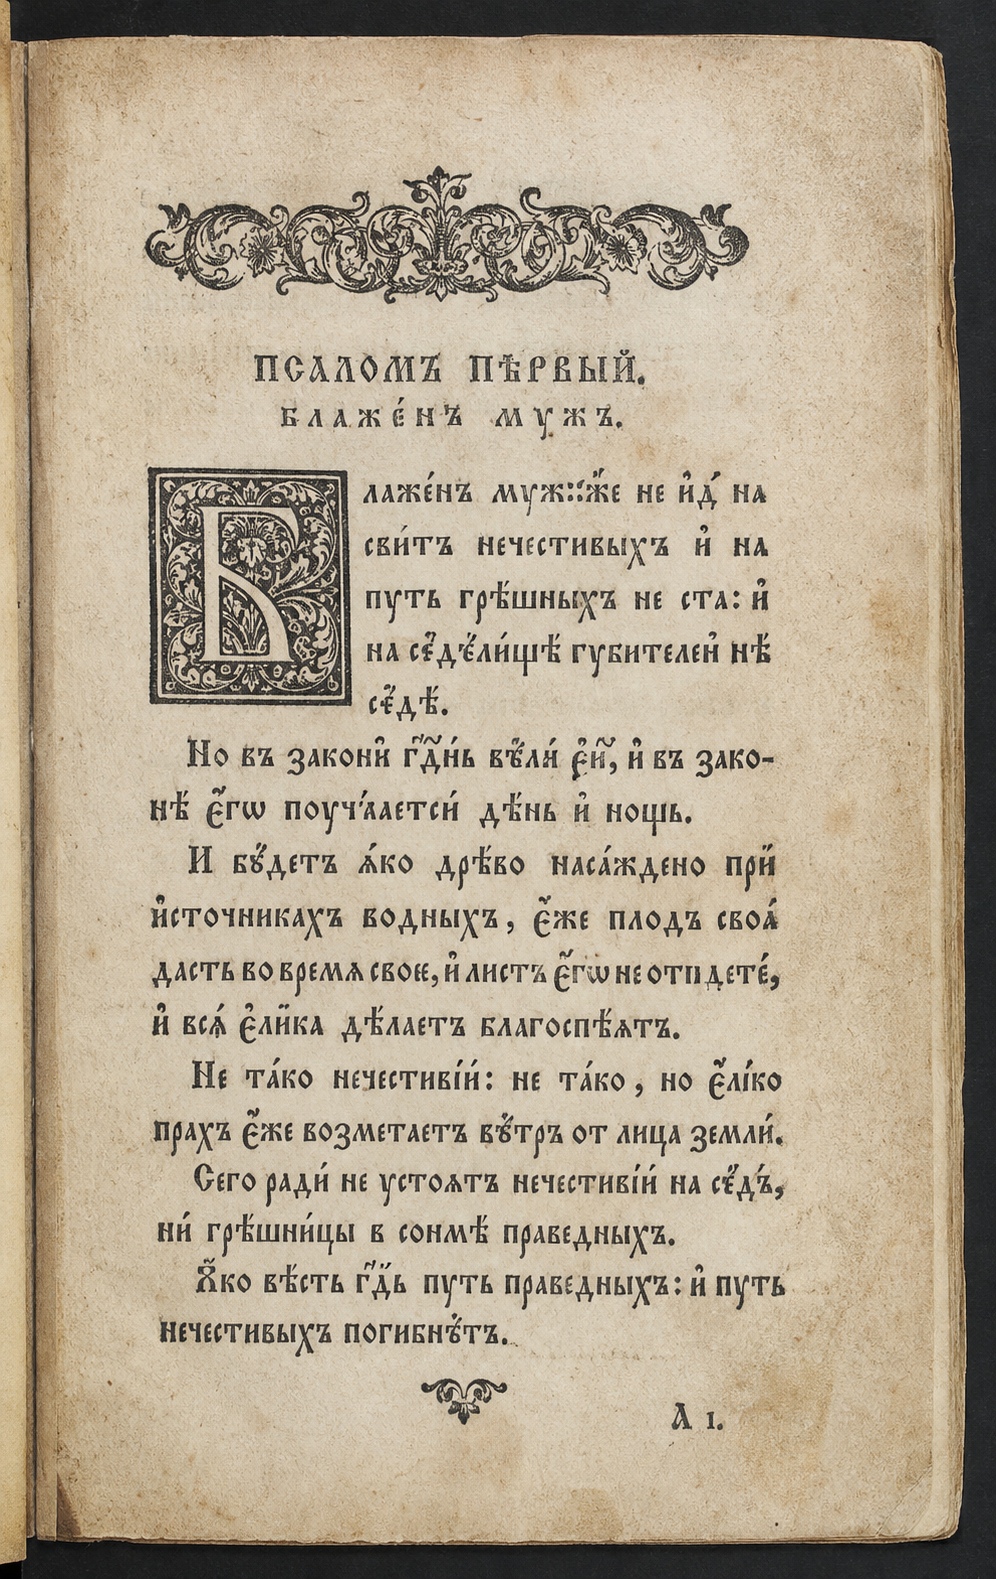 ПСАЛОМЪ ПѢРВЫЙ.
БЛАЖЕ́НЪ МУЖЪ.
Блаже́нъ не и҆д́ на
сви́тъ нечестивыхъ и҆ на
путь грѣ́шныхъ не ста: и҆
на губителей нѣ
Но въ закони҆ и҆ въ зако-
нѣ є҆́гѡ дѣ́нь и҆ нощь.
И бу́детъ ꙗ҆́ко дрѣ́во наса́ждено при̋
и҆сточникахъ водныхъ, є҆́же плодъ своѧ́
дасть во время свое, и҆ листъ є҆́гѡ не отпдете́,
и҆ всѧ́ є҆ли̋ка дѣ́лаетъ благоспѣ́ятъ.
Не та́ко нечестиві́и: не та́ко, но є҆́лі́ко
прахъ є҆́же возметаетъ вѣ́тръ от лица земли́.
Сего ради́ не устоятъ нечестиві́и на
ни́ грѣ́шни́цы в сонмѣ́ праведныхъ.
Ꙗ҆́ко вѣ́сть гд҃ь путь праведныхъ: и҆ путь
нечестивыхъ погибнѣ́тъ.
А 1.